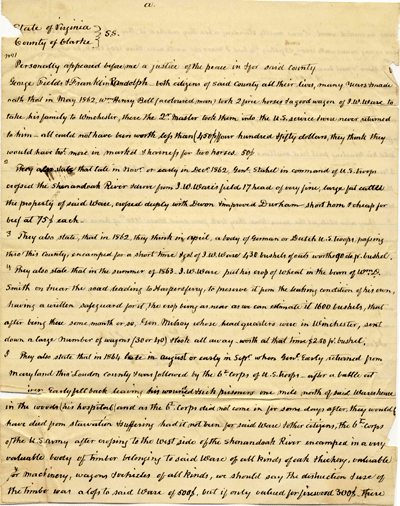 a.
State of Virginia
County of Clarke } S.S.
No 1
Personally appeared before me a justice of the peace in & for said County
George Fields & Franklin Randolph - both citizens of said County all their lives, many years & made
oath that in May 1862, Wm Henry Bell (a coloured man) took 2 fine horses & a good wagon of J. W. Ware to
take his family to Winchester, there the 2d Master took them into the U.S. service & were never returned
to him - all could not have been worth less than (450$) four hundred & fifty dollars, they think they
would have bro't more in market & harness for two horses. 50$
2
They also state that late in Novr or early in Decr 1862, Genl Stahel in command of U.S. troops
crossed the Shenandoah River & drove from J. W. Ware's field 17 head of very fine, large fat cattle
the property of said Ware, crossed deeply with Devon & improved Durham short horn & cheap for
beef at 75$ each.
3 They also state, that in 1862, they think in April, a body of German or Dutch U.S. troops, passing
thro' this County, encamped for a short time & got of J. W. Ware 430 bushels of oats worth 90 cts pr. bushel.
4 They also state that in the summer of 1863, J. W. Ware put his crop of wheat in the barn of Wm D.
Smith on & near the road leading to Harpers ferry, to preserve it from the leaking condition of his own,
having a written safeguard for it, the crop being as near as we can estimate it 1600 bushels, that
after being there some month or so, Gen. Milroy whose head quarters were in Winchester, sent
down a large number of wagons (30 or 40) & took all away - worth at that time $2.00 pr. bushel.
5 They also state that in 1864 late in August or early in Sept. when Genl Early returned from
Maryland thro' Loudon County & was followed by the 6th Corps of U.S. troops - after a battle at
river Early fell back leaving his wounded & sick prisoners one mile north of said Ware's house
in the woods (his hospital) and as the 6th Corps did not come in for some days after, they would
have died from starvation & suffering had it not been for said Ware & other citizens, the 6th Corps
of the U.S. Army after crossing to the west side of the Shenandoah River encamped in a very
valuable body of timber belonging to said Ware of all kinds of oak & hickory, valuable
for machinery, wagons & vehicles of all kinds, we should say the distruction & use of
the timber was a loss to said Ware of 500$, but if only valued for firewood 300$. There